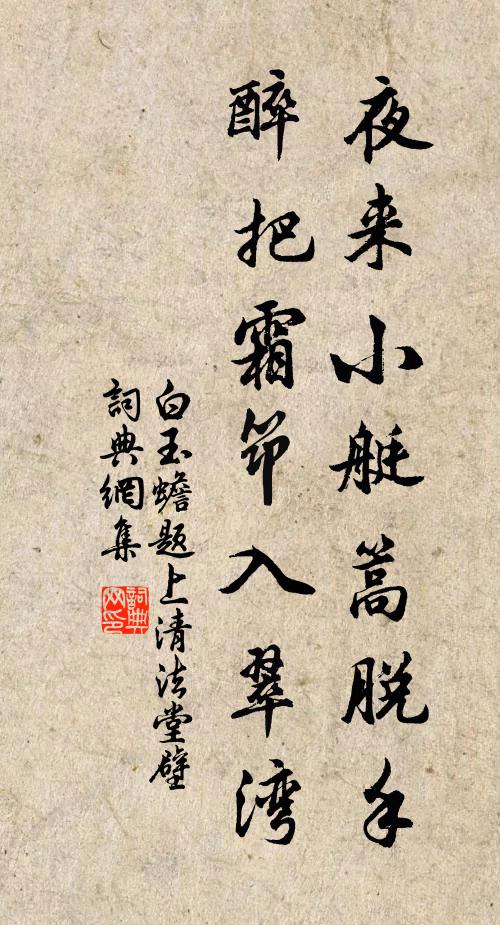 夜来小艇篙脱手
醉把霜笻入翠湾
白玉蟾题上清法堂壁
詞典網集
詞典网印